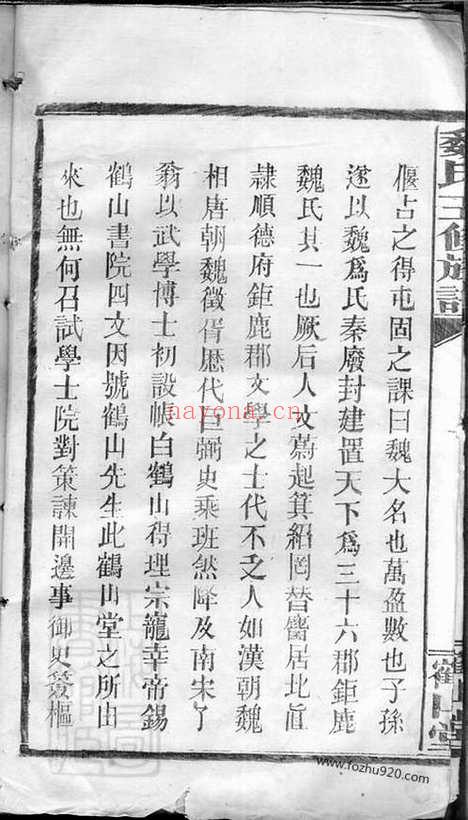 魏氏三修族譜
鶴山堂
偃占之得屯固之課曰魏大名也萬盈數也子孫
遂以魏爲氏秦廢封建置天下爲三十六郡鉅鹿
魏氏其一也厥后人文蔚起箕紹罔替舊居北直
隸順德府鉅鹿郡文學之士代不乏人如漢朝魏
相唐朝魏徵胥歷代巨弼史乘班然降及南宋了
翁以武學博士初設帳白鶴山得理宗寵幸帝錫
鶴山書院四文因號鶴山先生此鶴山堂之所由
來也無何召試學士院對策諫開邊事御史簽樞
nayona.cn
www.fozhu920.com